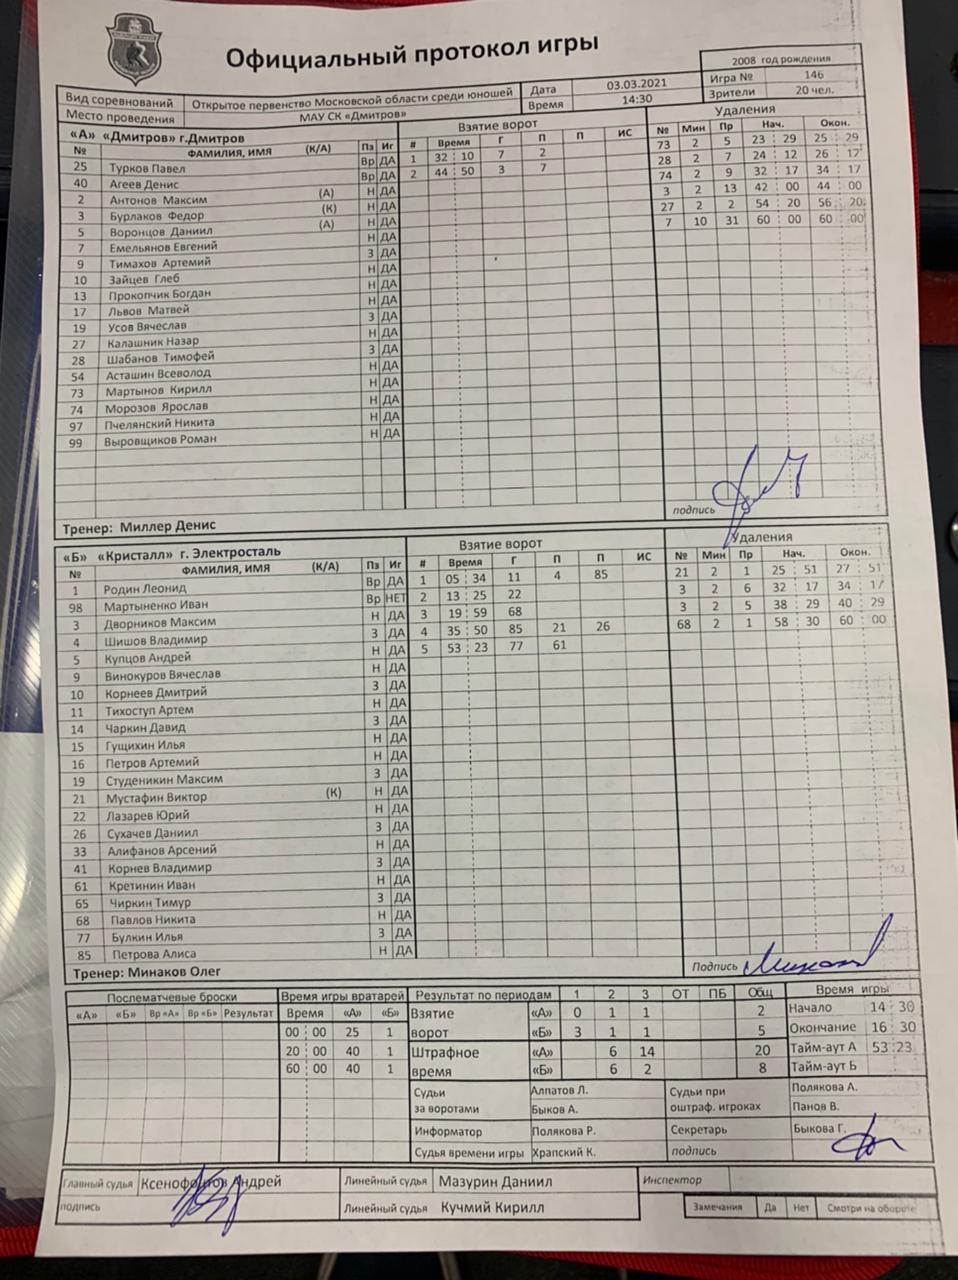 Официальный протокол игры
2008 год рождения
Вид соревнований Открытое первенство Московской области среди юношей Дата 03.03.2021 Игра № 146
Место проведения МАУ СК «Дмитров» Время 14:30 Зрители 20 чел.
«А» «Дмитров» г.Дмитров Взятие ворот Удаления
№ ФАМИЛИЯ, ИМЯ (К/А) Пз Иг # Время Г П П ИС № Мин Пр Нач. Окон.
25 Турков Павел Вр ДА 1 32 : 10 7 2 73 2 5 23 : 29 25 : 29
40 Агеев Денис Вр ДА 2 44 : 50 3 7 28 2 7 24 : 12 26 : 17
2 Антонов Максим (А) Н ДА 74 2 9 32 : 17 34 : 17
3 Бурлаков Федор (К) Н ДА 3 2 13 42 : 00 44 : 00
5 Воронцов Даниил (А) Н ДА 27 2 2 54 : 20 56 : 20
7 Емельянов Евгений Н ДА 7 10 31 60 : 00 60 : 00
9 Тимахов Артемий З ДА
10 Зайцев Глеб Н ДА
13 Прокопчик Богдан Н ДА
17 Львов Матвей Н ДА
19 Усов Вячеслав З ДА
27 Калашник Назар Н ДА
28 Шабанов Тимофей З ДА
54 Асташин Всеволод Н ДА
73 Мартынов Кирилл Н ДА
74 Морозов Ярослав Н ДА
97 Пчелянский Никита Н ДА
99 Выровщиков Роман Н ДА
подпись
Тренер: Миллер Денис
«Б» «Кристалл» г. Электросталь Взятие ворот Удаления
№ ФАМИЛИЯ, ИМЯ (К/А) Пз Иг # Время Г П П ИС № Мин Пр Нач. Окон.
1 Родин Леонид Вр ДА 1 05 : 34 11 4 85 21 2 1 25 : 51 27 : 51
98 Мартыненко Иван Вр НЕТ 2 13 : 25 22 3 2 6 32 : 17 34 : 17
3 Дворников Максим Н ДА 3 19 : 59 68 3 2 5 38 : 29 40 : 29
4 Шишов Владимир З ДА 4 35 : 50 85 21 26 68 2 1 58 : 30 60 : 00
5 Купцов Андрей Н ДА 5 53 : 23 77 61
9 Винокуров Вячеслав Н ДА
10 Корнеев Дмитрий З ДА
11 Тихоступ Артем Н ДА
14 Чаркин Давид З ДА
15 Гущихин Илья Н ДА
16 Петров Артемий Н ДА
19 Студеникин Максим З ДА
21 Мустафин Виктор (К) Н ДА
22 Лазарев Юрий Н ДА
26 Сухачев Даниил З ДА
33 Алифанов Арсений Н ДА
41 Корнев Владимир З ДА
61 Кретинин Иван Н ДА
65 Чиркин Тимур З ДА
68 Павлов Никита Н ДА
77 Булкин Илья З ДА
85 Петрова Алиса Н ДА
Тренер: Минаков Олег Подпись
Послематчевые броски Время игры вратарей Результат по периодам 1 2 3 ОТ ПБ Общ Время игры
«А» «Б» Вр «А» Вр «Б» Результат Время «А» «Б» Взятие «А» 0 1 1 2 Начало 14 : 30
00 : 00 25 1 ворот «Б» 3 1 1 5 Окончание 16 : 30
20 : 00 40 1 Штрафное «А» 6 14 20 Тайм-аут А 53 : 23
60 : 00 40 1 время «Б» 6 2 8 Тайм-аут Б
Судьи Алпатов Л. Судьи при Полякова А.
за воротами Быков А. оштраф. игроках Панов В.
Информатор Полякова Р. Секретарь Быкова Г.
Судья времени игры Храпский К. подпись
Главный судья Ксенофонтов Андрей Линейный судья Мазурин Даниил Инспектор
подпись Линейный судья Кучмий Кирилл Замечания Да Нет Смотри на обороте